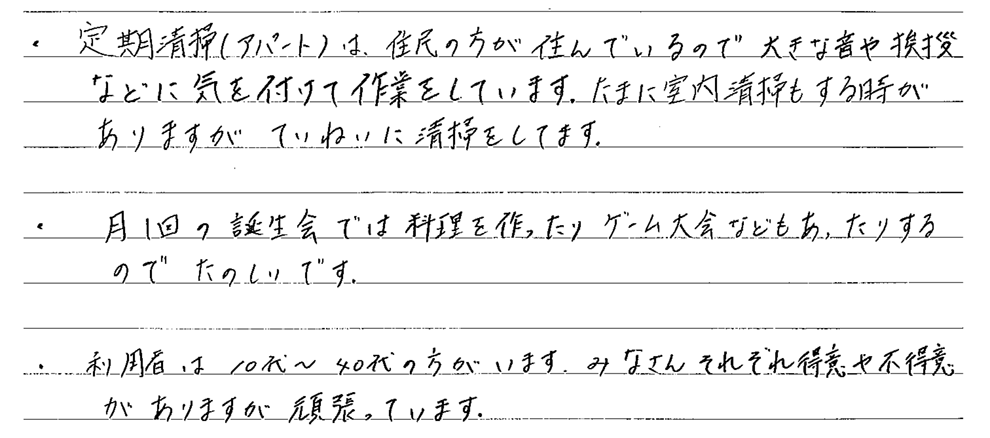 ・ 定期清掃(アパート)は、住民の方が住んでいるので大きな音や挨拶
などに気を付けて作業をしています。たまに室内清掃もする時が
ありますがていねいに清掃をしてます。
・ 月1回の誕生会では料理を作ったりゲーム大会などもあったりする
のでたのしいです。
・ 利用者は10代～40代の方がいます。みなさんそれぞれ得意や不得意
がありますが頑張っています。